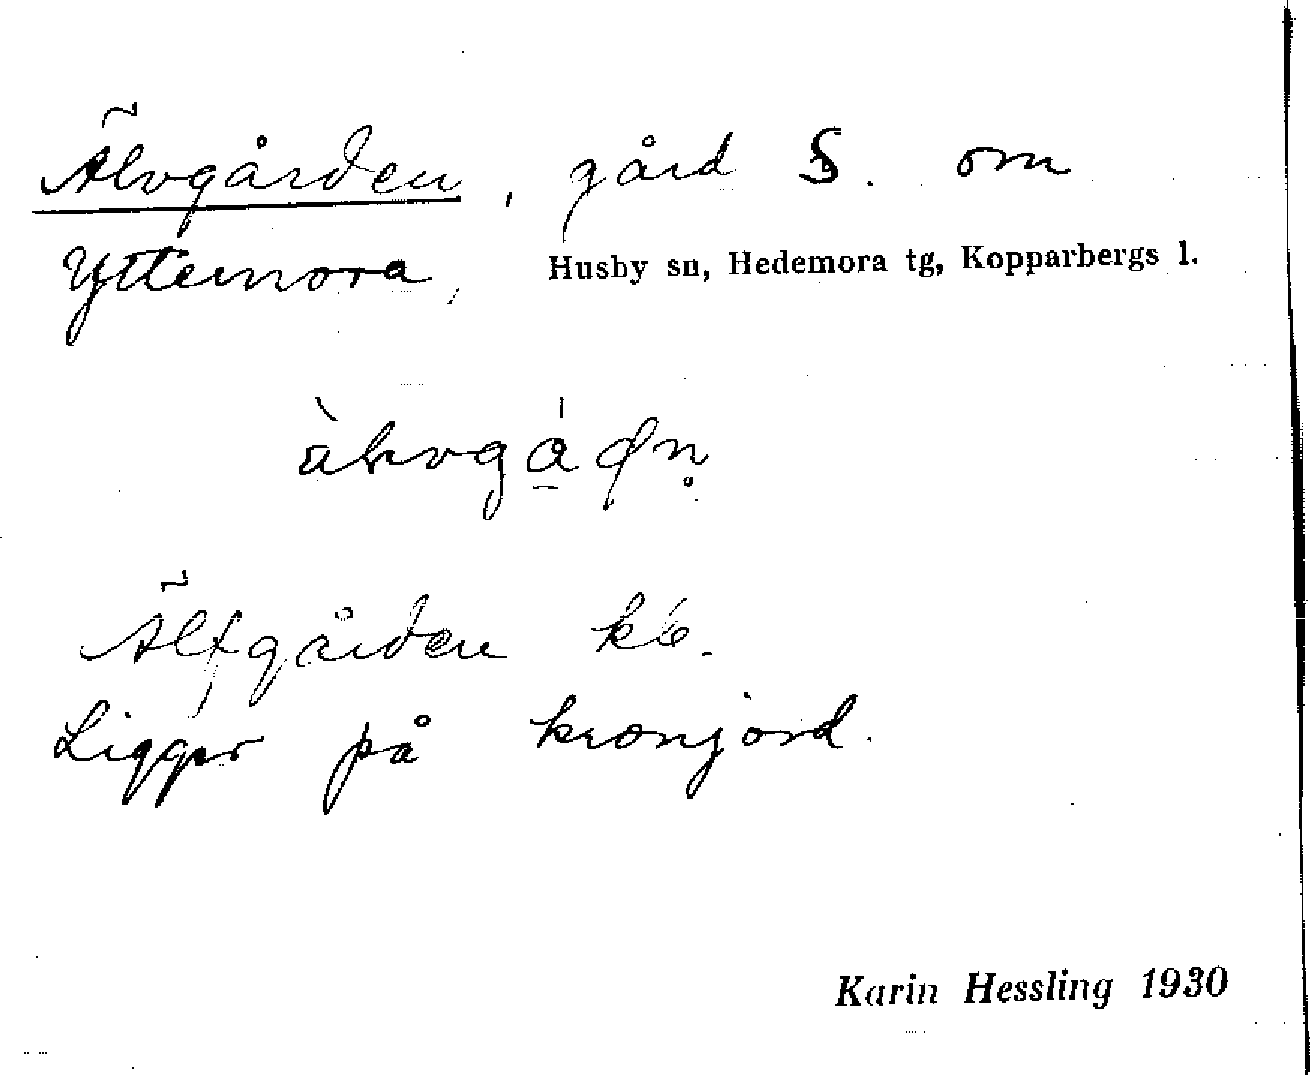 Älvgården, gård S. om
Yttermora, Husby sn, Hedemora tg, Kopparbergs l.
Älfgården kb.
Ligger på kronjord.
Karin Hessling 1930